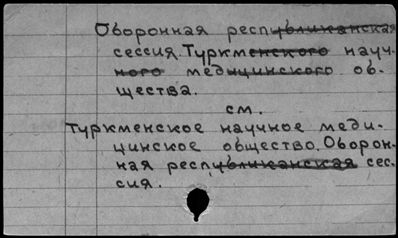 Оборонная республиканская
сессия. Туркменского науч-
ного медицинского об-
щества.
см.
Туркменское научное меди-
цинское общество. Оборон-
ная республиканская сес-
сия.